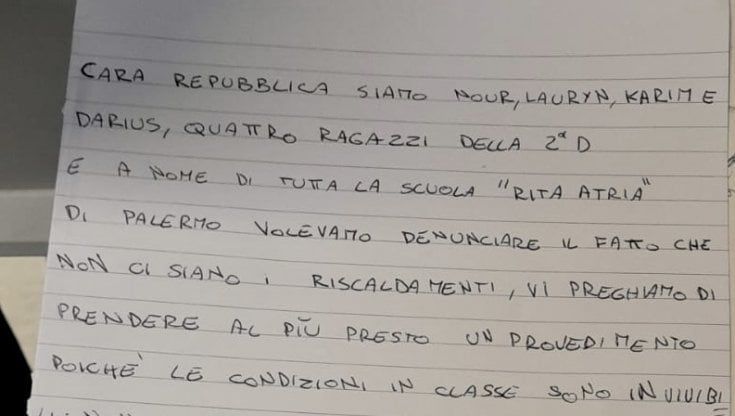 CARA REPUBBLICA SIAMO NOUR, LAURYN, KARIM E
DARIUS, QUATTRO RAGAZZI DELLA 2ª D
E A NOME DI TUTTA LA SCUOLA "RITA ATRIA"
DI PALERMO VOLEVAMO DENUNCIARE IL FATTO CHE
NON CI SIANO I RISCALDAMENTI, VI PREGHIAMO DI
PRENDERE AL PIÙ PRESTO UN PROVEDIMENTO
POICHÈ LE CONDIZIONI IN CLASSE SONO INVIVIBI